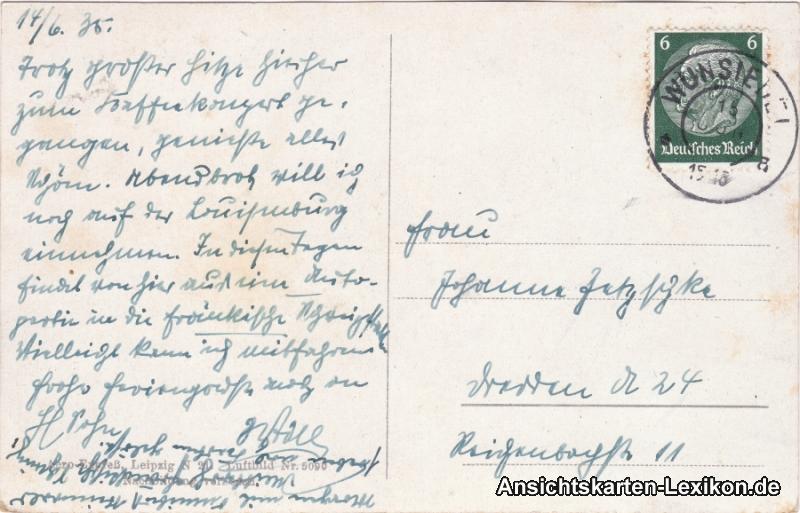 14/6. 35.
Trotz großer Hitze hierher
zum Kaffeekonzert ge-
gangen, genieße alles
Schöne. Abendbrot will ich
noch auf der Louisenburg
einnehmen. In diesen Tagen
findet von hier aus eine Auto-
partie in die fränkische Schweiz statt
Vielleicht kann ich mitfahren
Frohe Feriengrüße
Aero-Expreß, Leipzig N 2 Luftbild Nr. 5096
6 6
Deutsches Reich
WUNSIEDEL
Frau
Johanne Zetzschke
Dresden A 24
Reichenbachstr 11
Ansichtskarten-Lexikon.de